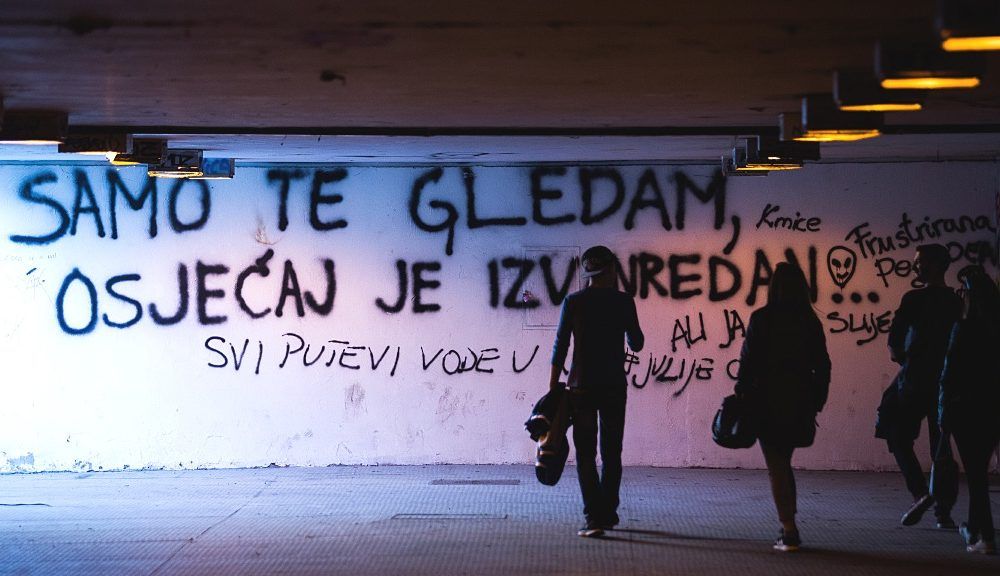 SAMO TE GLEDAM,
OSJEĆAJ JE IZVANREDAN...
SVI PUTEVI VODE U
Kmice
Frustrirana
ALI JA
#JULIJE